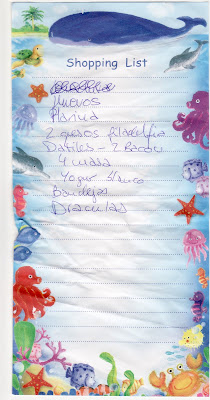 Shopping List
Huevos
Harina
2 quesos filadelfia
Datiles - 2 Bacon
4 masa
Yogur blanco
Bandejas
Draculas